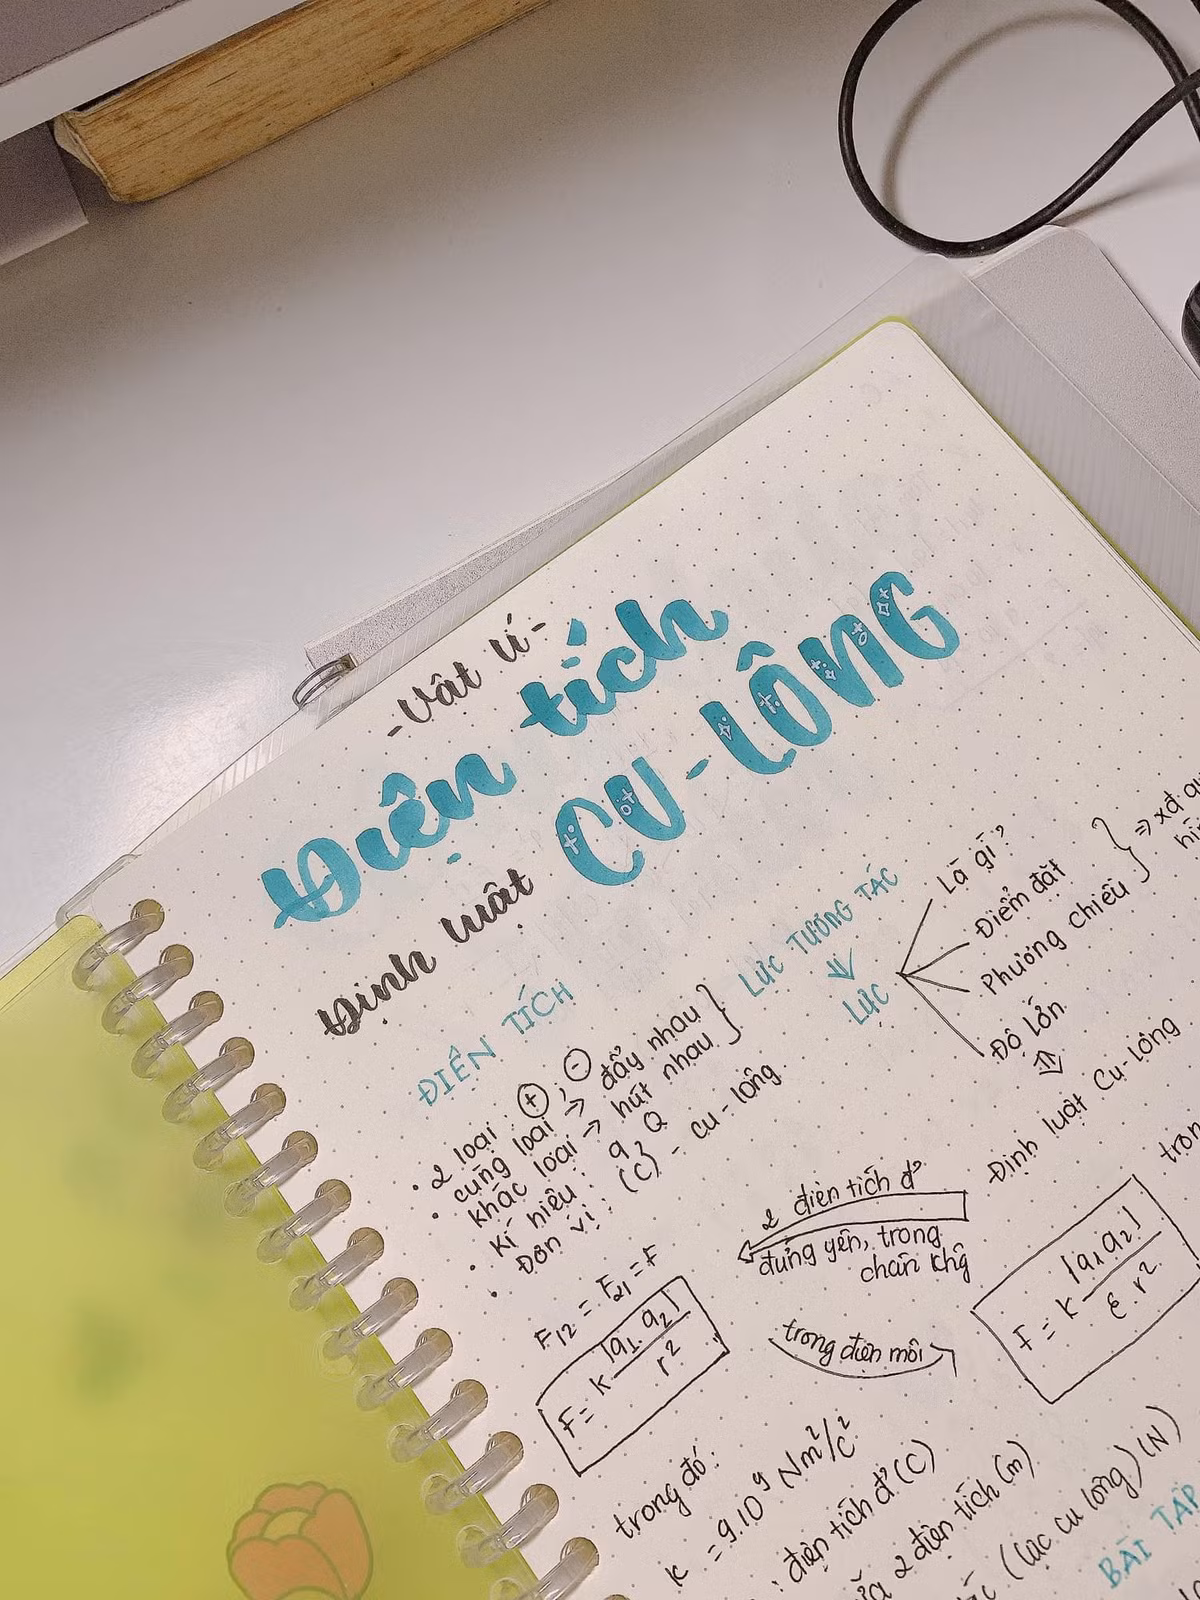 -Vật lí-
Điện tích
Định luật CU-LÔNG
ĐIỆN TÍCH
• 2 loại ⊕ ; ⊖
• cùng loại → đẩy nhau
khác loại → hút nhau
• kí hiệu: q Q
• Đơn vị: (C) - cu-lông
LỰC TƯƠNG TÁC
⇓
LỰC
Là gì?
Điểm đặt
Phương chiều
⇒ xđ
Độ lớn
⇑
Định luật Cu-lông
2 điện tích đ'
đứng yên, trong
chân khg
trong điện môi
F₁₂ = F₂₁ = F
F = k |q₁.q₂| / r²
F = k |q₁q₂| / ε.r²
trong đó:
k = 9.10⁹ Nm²/C²
: điện tích đ' (C)
2 điện tích (m)
(lực cu lông) (N)
BÀI TẬP